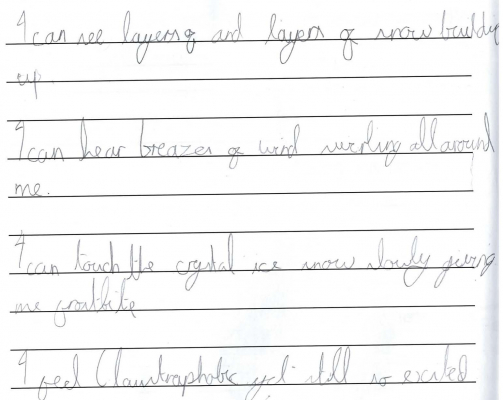 I can see layers of and layers of snow building
up.
I can hear breazes of wind swirling all around
me.
I can touch the crystal ice snow slowly giving
me frostbite
I feel Claustraphobic yet still so excited